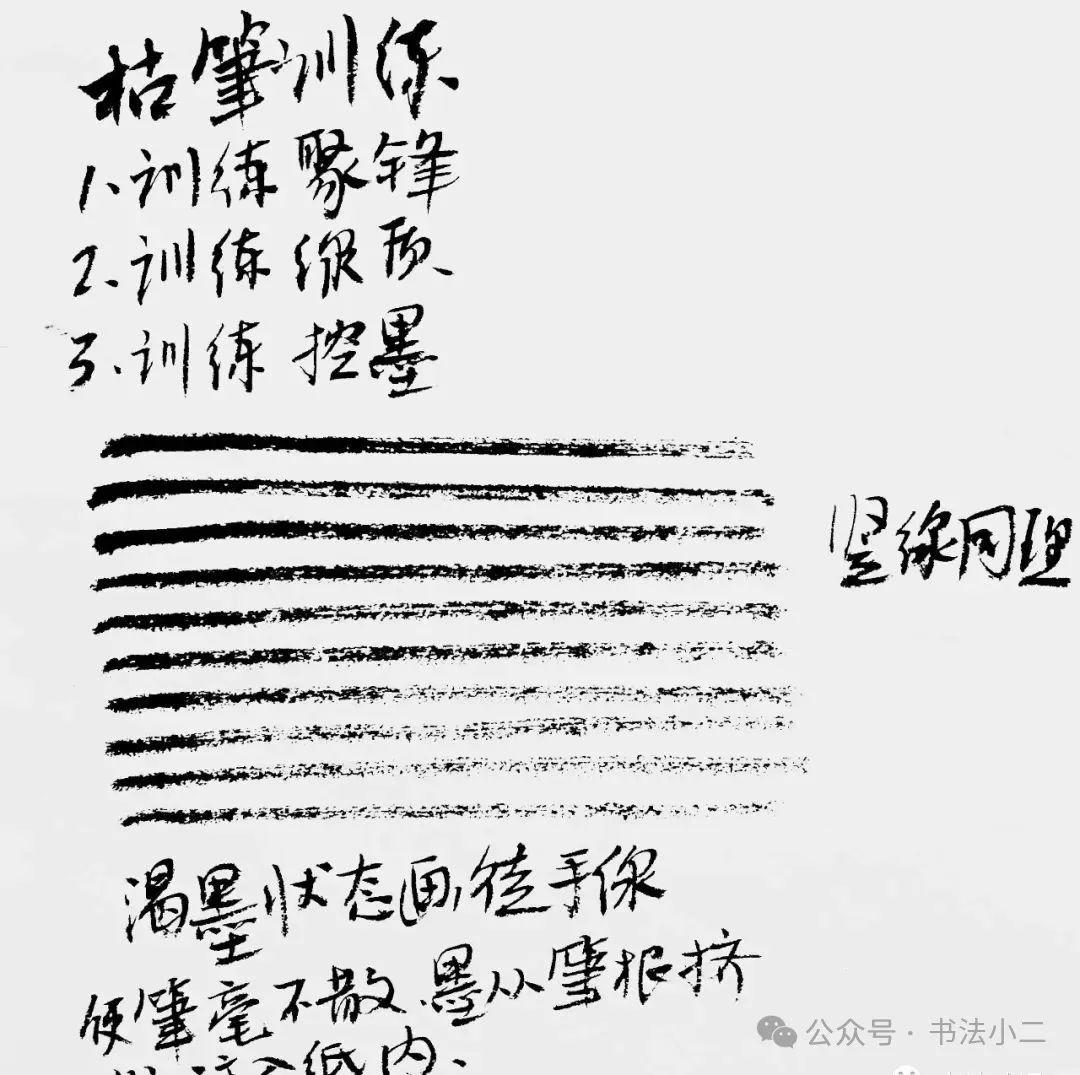 枯筆训练
1、训练聚锋
2、训练线质
3、训练控墨
竖线同理
渴墨状态画徒手线
使筆毫不散、墨从筆根挤
入纸内、
公众号·书法小二